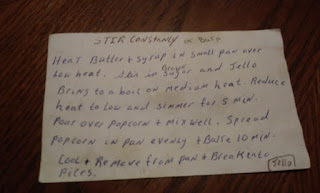 STIR CONSTANLY or BURN
HEAT Butter + Syrup in small pan over
Low heat. Stir in Brown Sugar and Jello
Bring to a boil on medium heat. Reduce
heat to low and simmer for 5 min.
Poor over Popcorn + mix well. Spread
Popcorn in pan evenly + Bake 10 min.
Cool + Remove from pan + Break into
Pices.
Jello